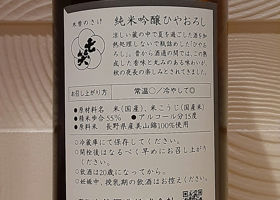 木曽のさけ
七笑
純米吟醸ひやおろし
涼しい蔵の中で夏を過ごした酒をお
熱処理しないで瓶詰めした「ひやお
ろし」。昔から酒通の間では、この熟
成した香味と丸みのある味わいが、
秋の夜長の楽しみとされています。
お召し上がり方
常温〇／冷やして◎
●原材料名 米(国産)、米こうじ(国産米)
●精米歩合55% ●アルコール分15度
●原料米 長野県産美山錦100%使用
◇冷蔵庫にて保存してください。
◇開栓後はなるべく早めにお召し上がりく
ださい。
◇飲酒は20歳になってから。
◇妊娠中、授乳期の飲酒はお控えください。